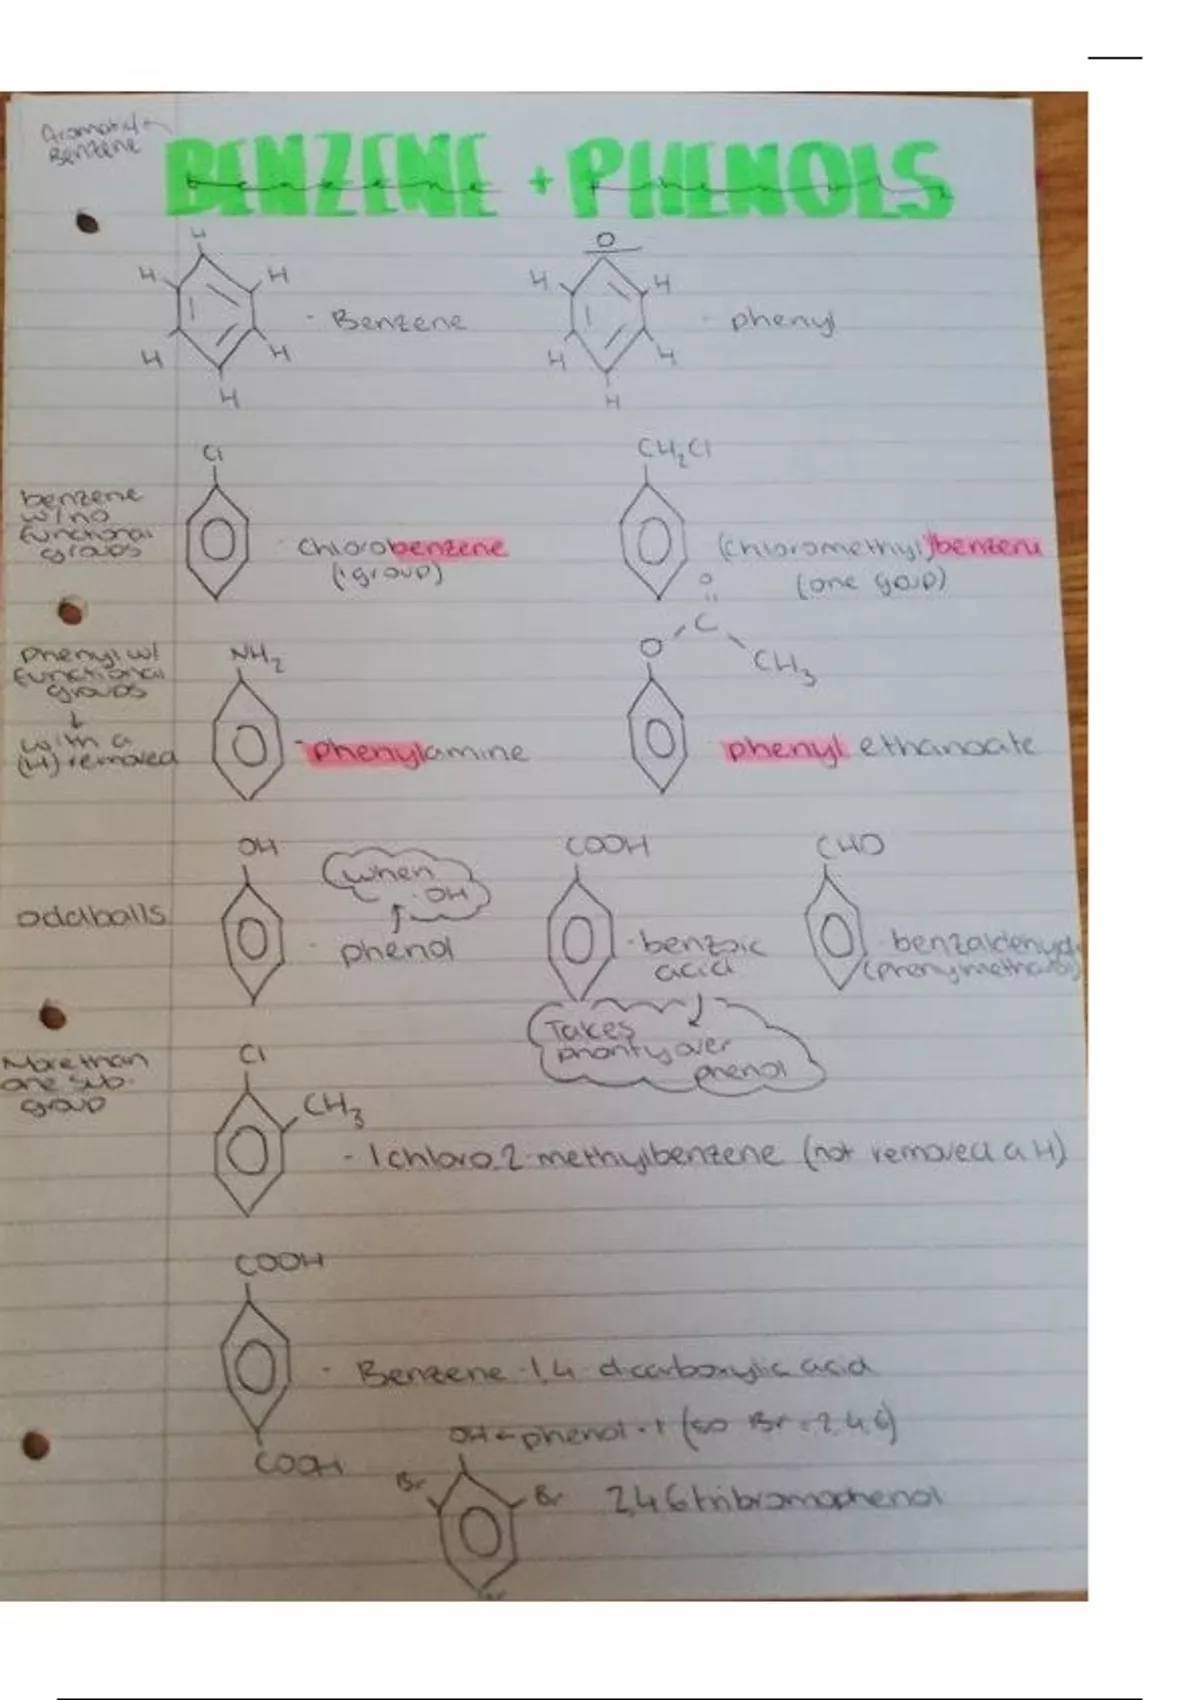 Aromatic
Benzene
BENZENE + PHENOLS
benzene + phenols
H
O
H H
H H
- Benzene
- phenyl
H H
H H
H
H
Cl
CH2Cl
benzene
w/no
functional
groups
chlorobenzene
(1 group)
(chloromethyl)benzene
(one goup)
O
C
O
CH3
phenyl w/
functional
groups
↓
with a
(H) removed
NH2
- phenylamine
phenyl ethanoate
OH
COOH
CHO
when
OH
oddballs
- phenol
- benzoic
acid
- benzaldehyde
Takes
priority over
phenol
More than
one sub.
group
Cl
CH3
- 1chloro 2 methylbenzene (not removed a H)
COOH
- Benzene -1,4 dicarboxylic acid
COOH
OH ← phenol - 1 (so Br = 2,4,6)
Br
Br
2,4 6 tribromophenol